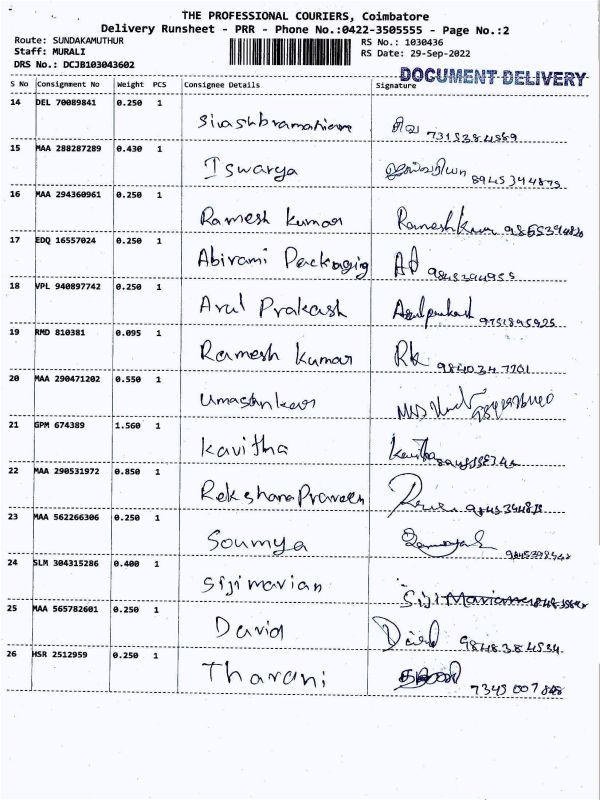 THE PROFESSIONAL COURIERS, Coimbatore
Delivery Runsheet - PRR - Phone No.:0422-3505555 - Page No.:2
Route: SUNDAKAMUTHUR
RS No.: 1030436
Staff: MURALI
RS Date: 29-Sep-2022
DRS No.: DCJB103043602
DOCUMENT DELIVERY
S No Consignment No Weight PCS Consignee Details Signature
14 DEL 70089841 0.250 1
15 MAA 288287289 0.430 1
Iswarya
16 MAA 294360961 0.250 1
Ramesh kumar Ramesh Kumar
17 EDQ 16557024 0.250 1
Abirami Packaging
18 VPL 940897742 0.250 1
Arul Prakash Arulprakash 9751895925
19 RMD 810381 0.095 1
Ramesh Kumar RK 984034 7201
20 MAA 290471202 0.550 1
21 GPM 674389 1.560 1
Kavitha Kavitha
22 MAA 290531972 0.850 1
Rekshana Praveen
23 MAA 562266306 0.250 1
Soumya
24 SLM 304315286 0.400 1
Siji marian Siji Marian
25 MAA 565782601 0.250 1
David David 9848384534
26 HSR 2512959 0.250 1
Tharani
7345007848